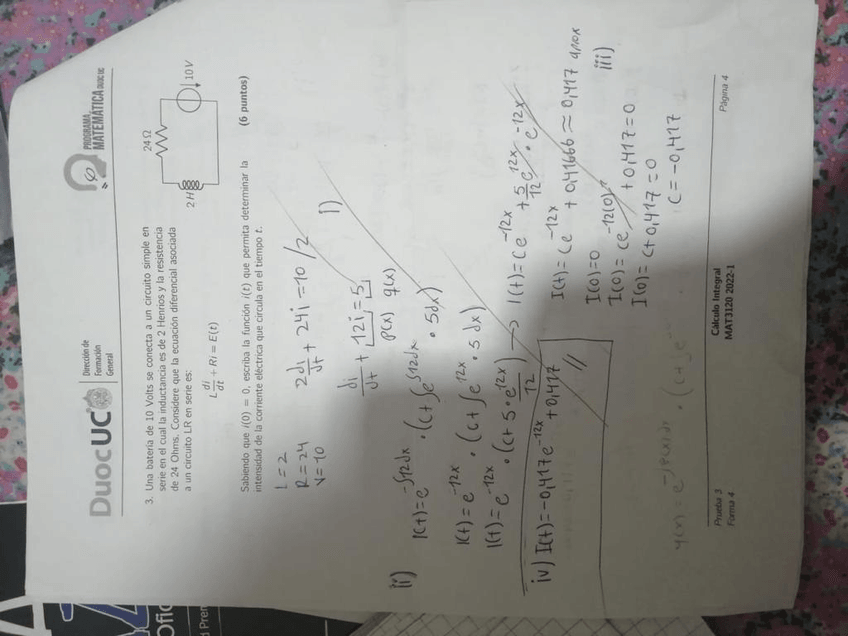 DuocUC
Dirección de
Formación
General
PROGRAMA
MATEMÁTICA DUOC UC
3. Una batería de 10 Volts se conecta a un circuito simple en
serie en el cual la inductancia es de 2 Henrios y la resistencia
de 24 Ohms. Considere que la ecuación diferencial asociada
a un circuito LR en serie es:
L di/dt + Ri = E(t)
24 Ω
2 H
10 V
Sabiendo que i(0) = 0, escriba la función i(t) que permita determinar la
intensidad de la corriente eléctrica que circula en el tiempo t.
(6 puntos)
L = 2
R = 24
V = 10
2di/dt + 24i = 10 /2
I)
di/dt + 12i = 5
P(x) q(x)
ii)
I(t) = e^-∫12dx · (c + ∫e^∫12dx · 5dx)
I(t) = e^-12x · (c + ∫e^12x · 5dx)
I(t) = e^-12x · (c + 5 · e^12x/12) → I(t) = Ce^-12x + 5/12 e^12x · e^-12x
I(t) = Ce^-12x + 0,41666 ≈ 0,417 aprox
I(0) = 0
iii)
I(0) = Ce^-12(0) + 0,417 = 0
I(0) = C + 0,417 = 0
C = -0,417
iv) I(t) = -0,417e^-12x + 0,417 //
Prueba 3
Forma 4
Cálculo Integral
MAT3120 2022-1
Página 4